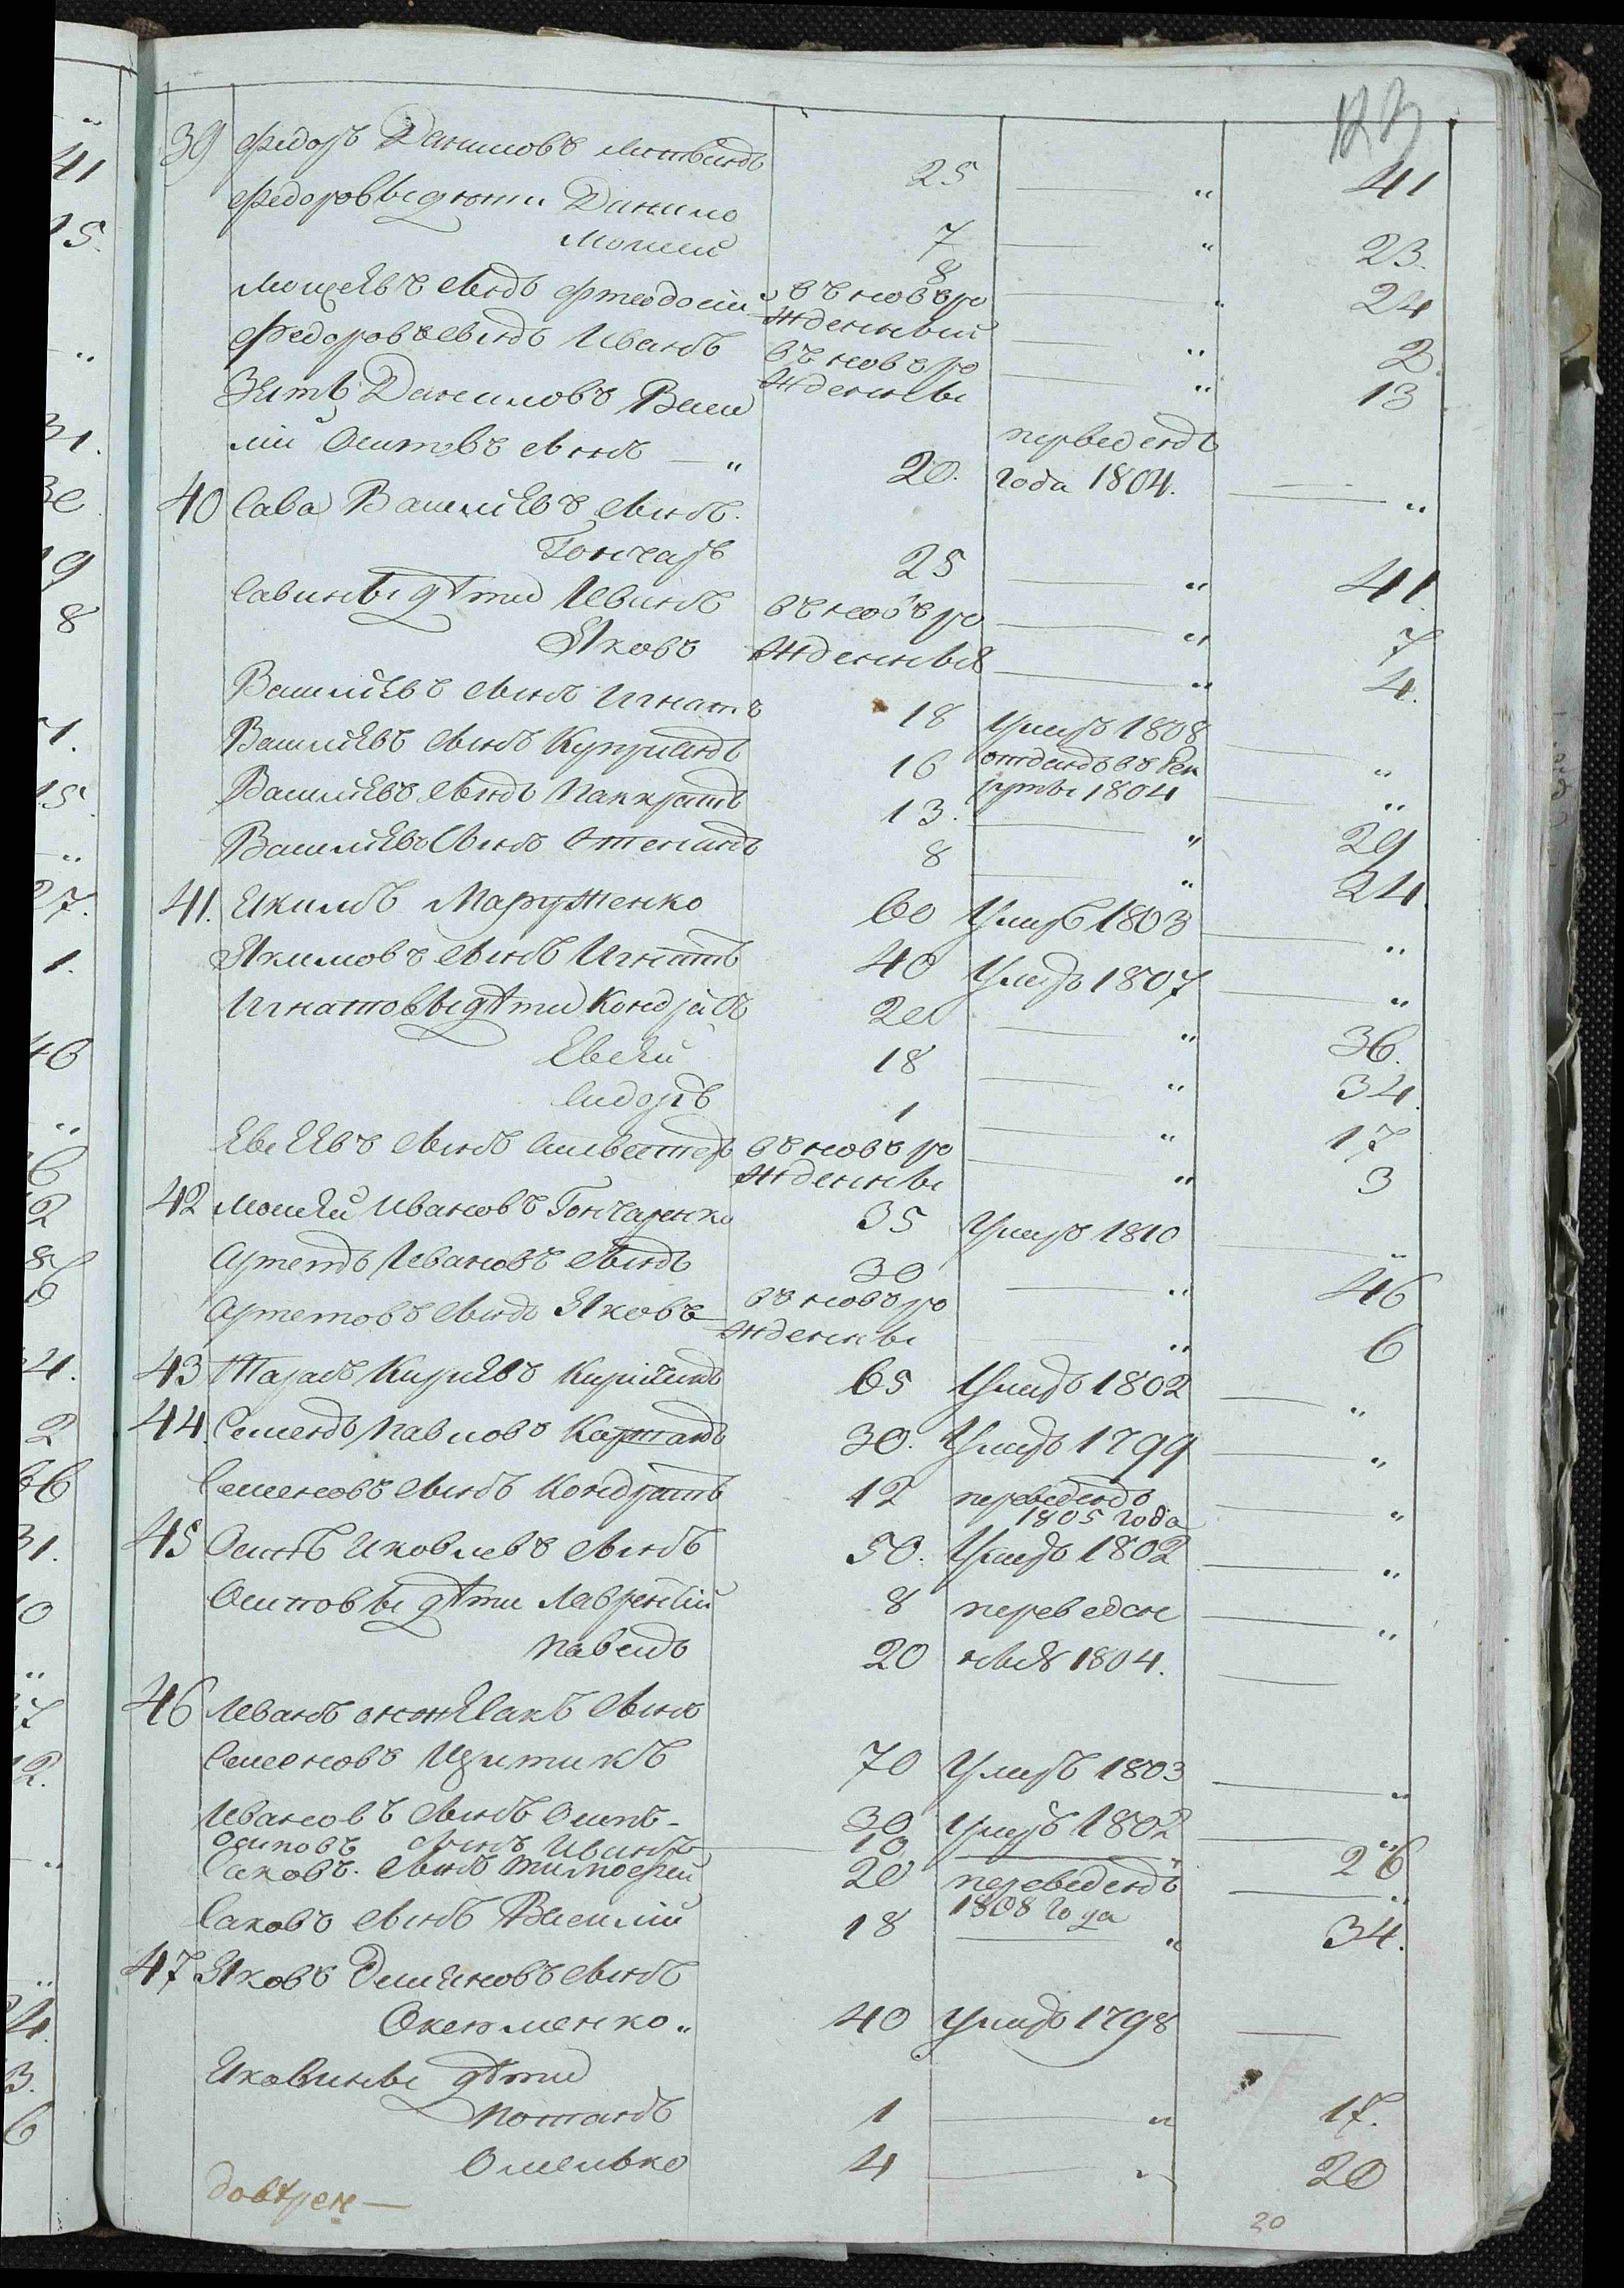 123
39 Федоръ Даниловъ Литвинъ 25 — " 41
Федоровы дѣти Данило 7 — " 23.
Мосей 8 — " 24
Мосѣевъ сынъ Феодосій въновъро
жденный — " 2
Федоровъ сынъ Иванъ въновъро
жденны — " 13
Зять Даниловъ Васи
лій Осиповъ сынъ — " 20. переведенъ
года 1804. — "
40 Сава Василіевъ сынъ
Гончаръ 25 — " 41.
Савины дѣти Иванъ въновъро — " 7
Яковъ жденныя — " 4.
Василіевъ сынъ Игнатъ 18 Умеръ 1808 — "
Василіевъ сынъ Купріянъ 16 отданъ въ рек
руты 1804 — "
Василіевъ сынъ Панкратъ 13. — " 29
Василіевъ сынъ Степанъ 8 — " 24.
41. Якимъ Маруженко 60 Умеръ 1803 — "
Якимовъ сынъ Игнатъ 40 Умеръ 1807 — "
Игнатовы дѣти Кондратъ 20 — " 36.
Евсѣй 18 — " 34.
Сидоръ 1 — " 17
Евсѣевъ сынъ Сильвестеръ въновъро
жденны — " 3
42 Мосѣй Ивановъ Гончаренко 35 Умеръ 1810 "
Артемъ Ивановъ сынъ 30 — " 46
Артемовъ сынъ Яковъ — въновъро
жденны — " 6
43 Тарасъ Кирѣевъ 65 Умеръ 1802 — "
44 Семенъ Павловъ 30. Умеръ 1799 — "
Семеновъ сынъ Кондратъ 12 переведенъ
1805 года — "
45 Осипъ Яковлевъ сынъ 50. Умеръ 1802 — "
Осиповы дѣти Лаврентій 8 переведен — "
Павелъ 20 ныя 1804. —
46 Иванъ сынъ
Семеновъ 70 Умеръ 1803 — "
Ивановъ сынъ Осипъ - 30 Умеръ 1802 — "
Осиповъ сынъ Иванъ — 10 — " 26
Саковъ сынъ Тимофей 20 переведенъ
1808 года — "
Саковъ сынъ Василій 18 — " 34.
47 Яковъ Демяновъ сынъ
40 Умеръ 1798 —
Яковины дѣти
Потапъ 1 — " 17.
Омелько 4 — " 20
20